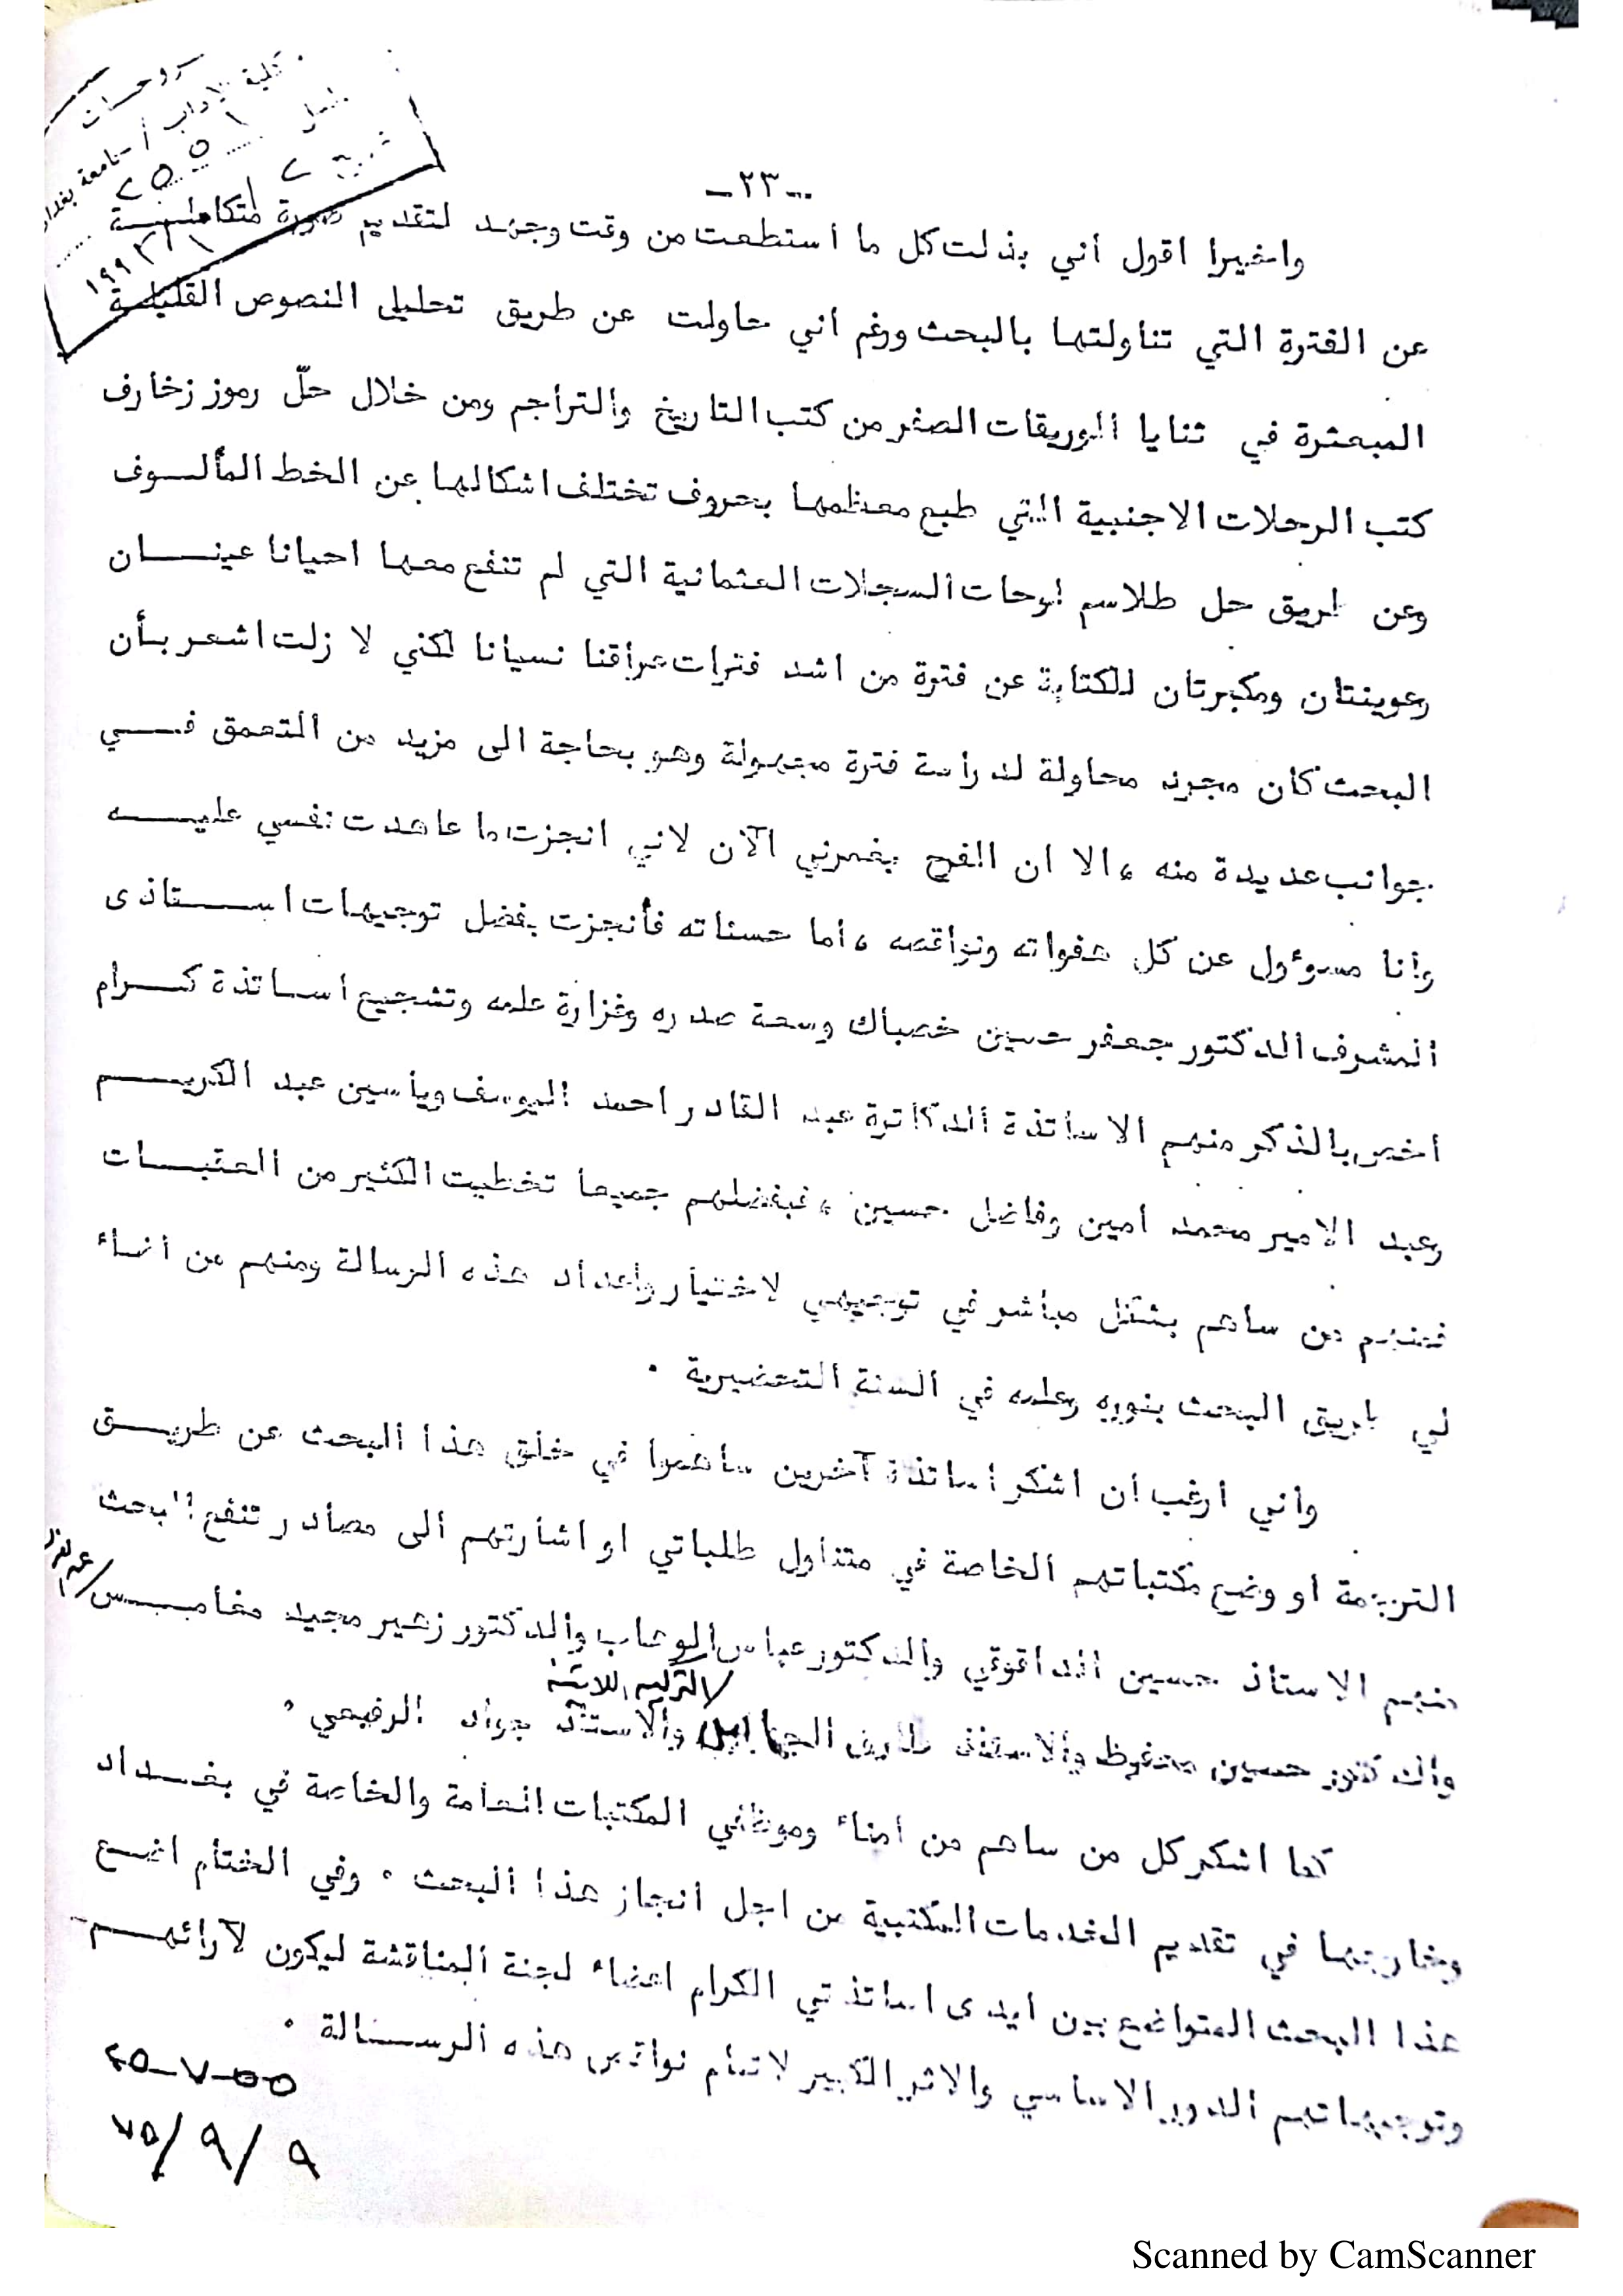 كلية الآداب / جامعة بغداد
٢٥٥١
-٢٣-
واخيرا اقول أني بذلت كل ما استطعت من وقت وجهد لتقديم صورة متكاملة
عن الفترة التي تناولتها بالبحث ورغم أني حاولت عن طريق تحليل النصوص القليلة
المبعثرة في ثنايا الوريقات الصفر من كتب التاريخ والتراجم ومن خلال حلّ رموز زخارف
كتب الرحلات الاجنبية التي طبع معظمها بحروف تختلف اشكالها عن الخط المألوف
وعن طريق حل طلاسم لوحات السجلات العثمانية التي لم تنفع معها احيانا عينان
وعوينتان ومكبرتان للكتابة عن فترة من اشد فترات عراقنا نسيانا لكني لا زلت اشعر بأن
البحث كان مجرد محاولة لدراسة فترة مجهولة وهو بحاجة الى مزيد من التعمق في
جوانب عديدة منه ، الا ان الفرح يغمرني الآن لاني انجزت ما عاهدت نفسي عليه
وأنا مسوءول عن كل هفواته ونواقصه ، أما حسناته فأنجزت بفضل توجيهات استاذى
المشرف الدكتور جعفر حسين خصباك وسعة صدره وغزارة علمه وتشجيع أساتذة كرام
اخص بالذكر منهم الاساتذة الدكاترة عبد القادر احمد اليوسف وياسين عبد الكريم
وعبد الامير محمد امين وفاضل حسين ، فبفضلهم جميعا تخطيت الكثير من العقبات
فمنهم من ساهم بشكل مباشر في توجيهي لاختيار واعداد هذه الرسالة ومنهم من اضاء
لي طريق البحث بنوره وعلمه في السنة التحضيرية .
وأني أرغب أن اشكر اساتذة آخرين ساهموا في خلق هذا البحث عن طريق
الترجمة او وضع مكتباتهم الخاصة في متناول طلباتي او اشارتهم الى مصادر تنفع البحث
منهم الاستاذ حسين الداقوقي والدكتور عباس الوهاب والدكتور زهير مجيد مغامس
والدكتور حسين محفوظ والاستاذ طارق والاستاذ جواد الرفيعي .
كما اشكر كل من ساهم من امناء وموظفي المكتبات العامة والخاصة في بغداد
وخارجها في تقديم الخدمات المكتبية من اجل انجاز هذا البحث . وفي الختام اضع
هذا البحث المتواضع بين ايدى اساتذتي الكرام اعضاء لجنة المناقشة ليكون لآرائهم
وتوجيهاتهم الدور الاساسي والاثر الكبير لاتمام نواقص هذه الرسالة .
٧٥/٩/٩
Scanned by CamScanner